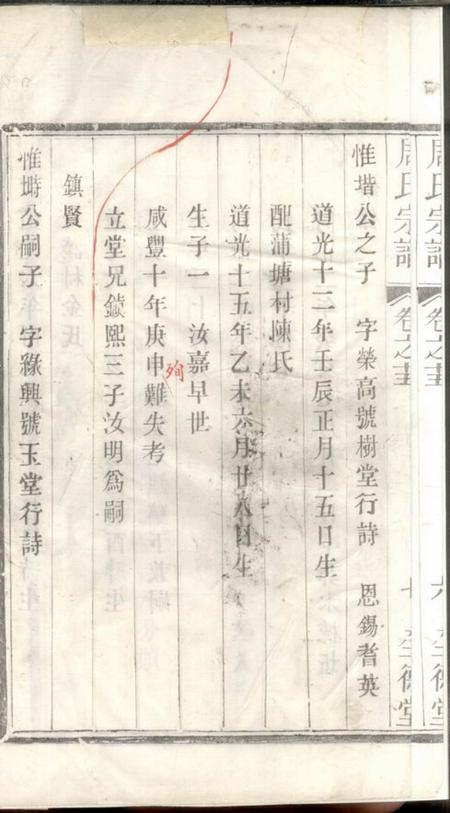 周氏宗譜 卷之
周氏宗譜 卷之 七
惟堦公之子 字榮高號樹堂行詩 恩錫耆英
道光十二年壬辰正月十五日生
配蒲塘村陳氏
道光十五年乙未六月廿八日生
生子一 汝嘉早世
咸豐十年庚申殉難失考
立堂兄鎮熙三子汝明為嗣
鎮賢
惟塒公嗣子 字緣興號玉堂行詩